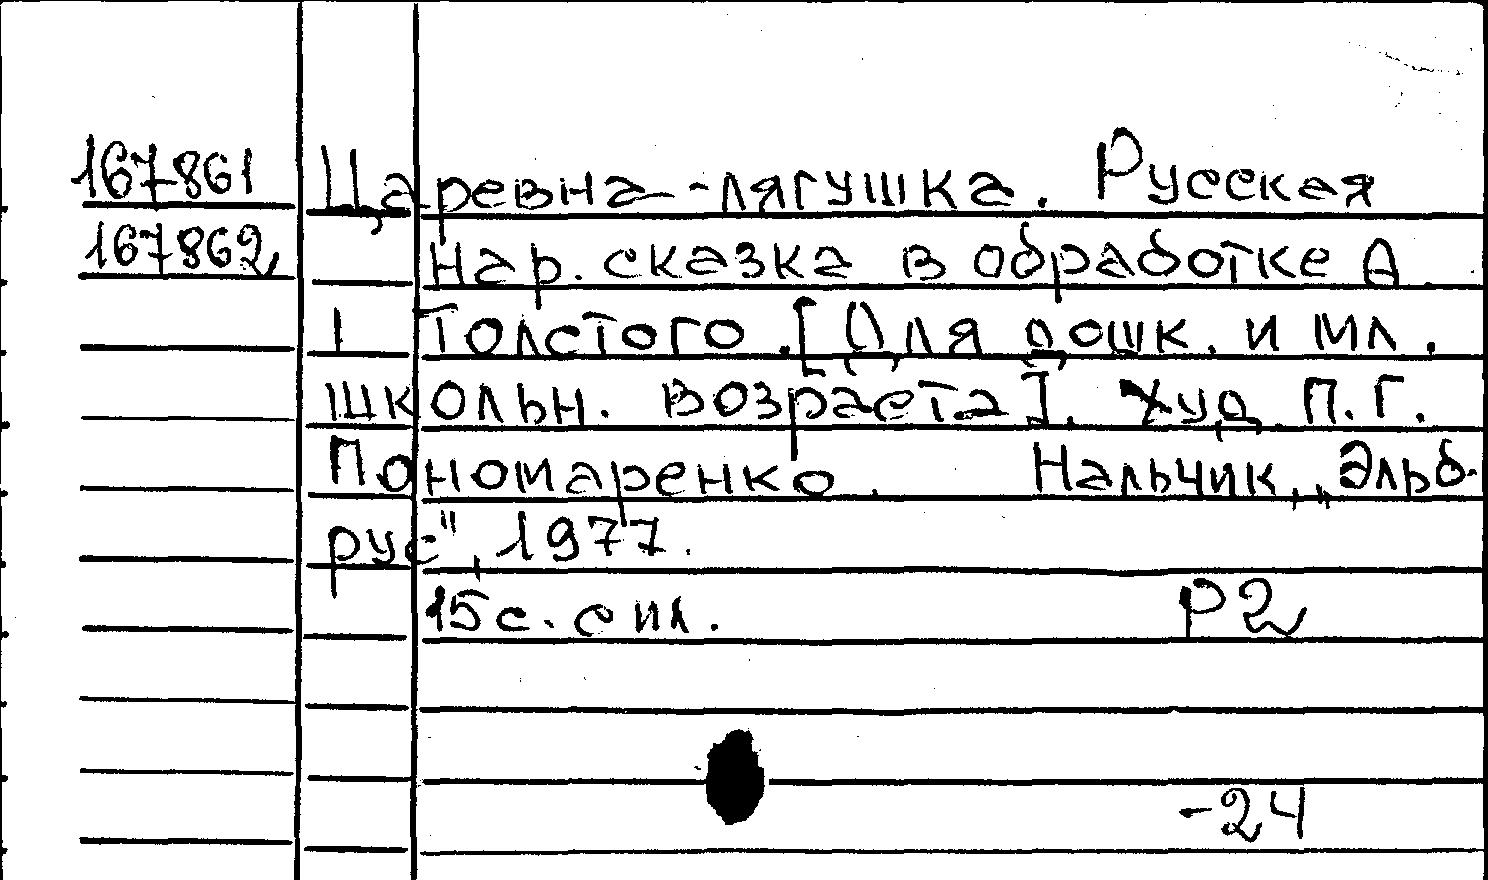 167861 Царевна-лягушка. Русская
167862 Нар. сказка в обработке А.
Толстого. [Для дошк. и мл.
школьн. возраста]. Худ. П.Г.
Пономаренко. Нальчик, „Эльб-
рус", 1977.
15 с. с ил. Р2
-24